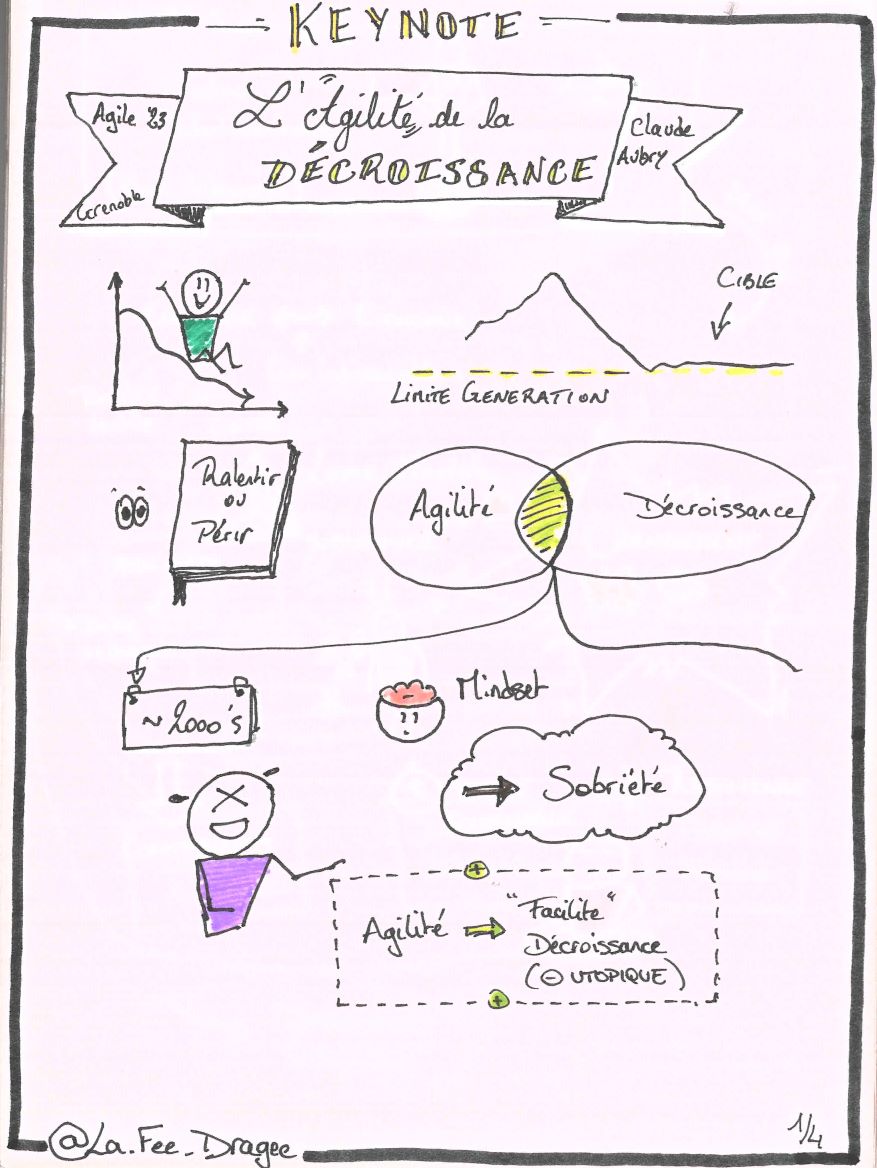 KEYNOTE
Agile '23
Grenoble
L'Agilité de la
DÉCROISSANCE
Claude
Aubry
CIBLE
LIMITE GENERATION
Ralentir
ou
Périr
Agilité
Décroissance
~ 2000's
Mindset
Sobriété
Agilité
"Facilite"
Décroissance
(⊖ UTOPIQUE)
@La_Fee_Dragee
1/4